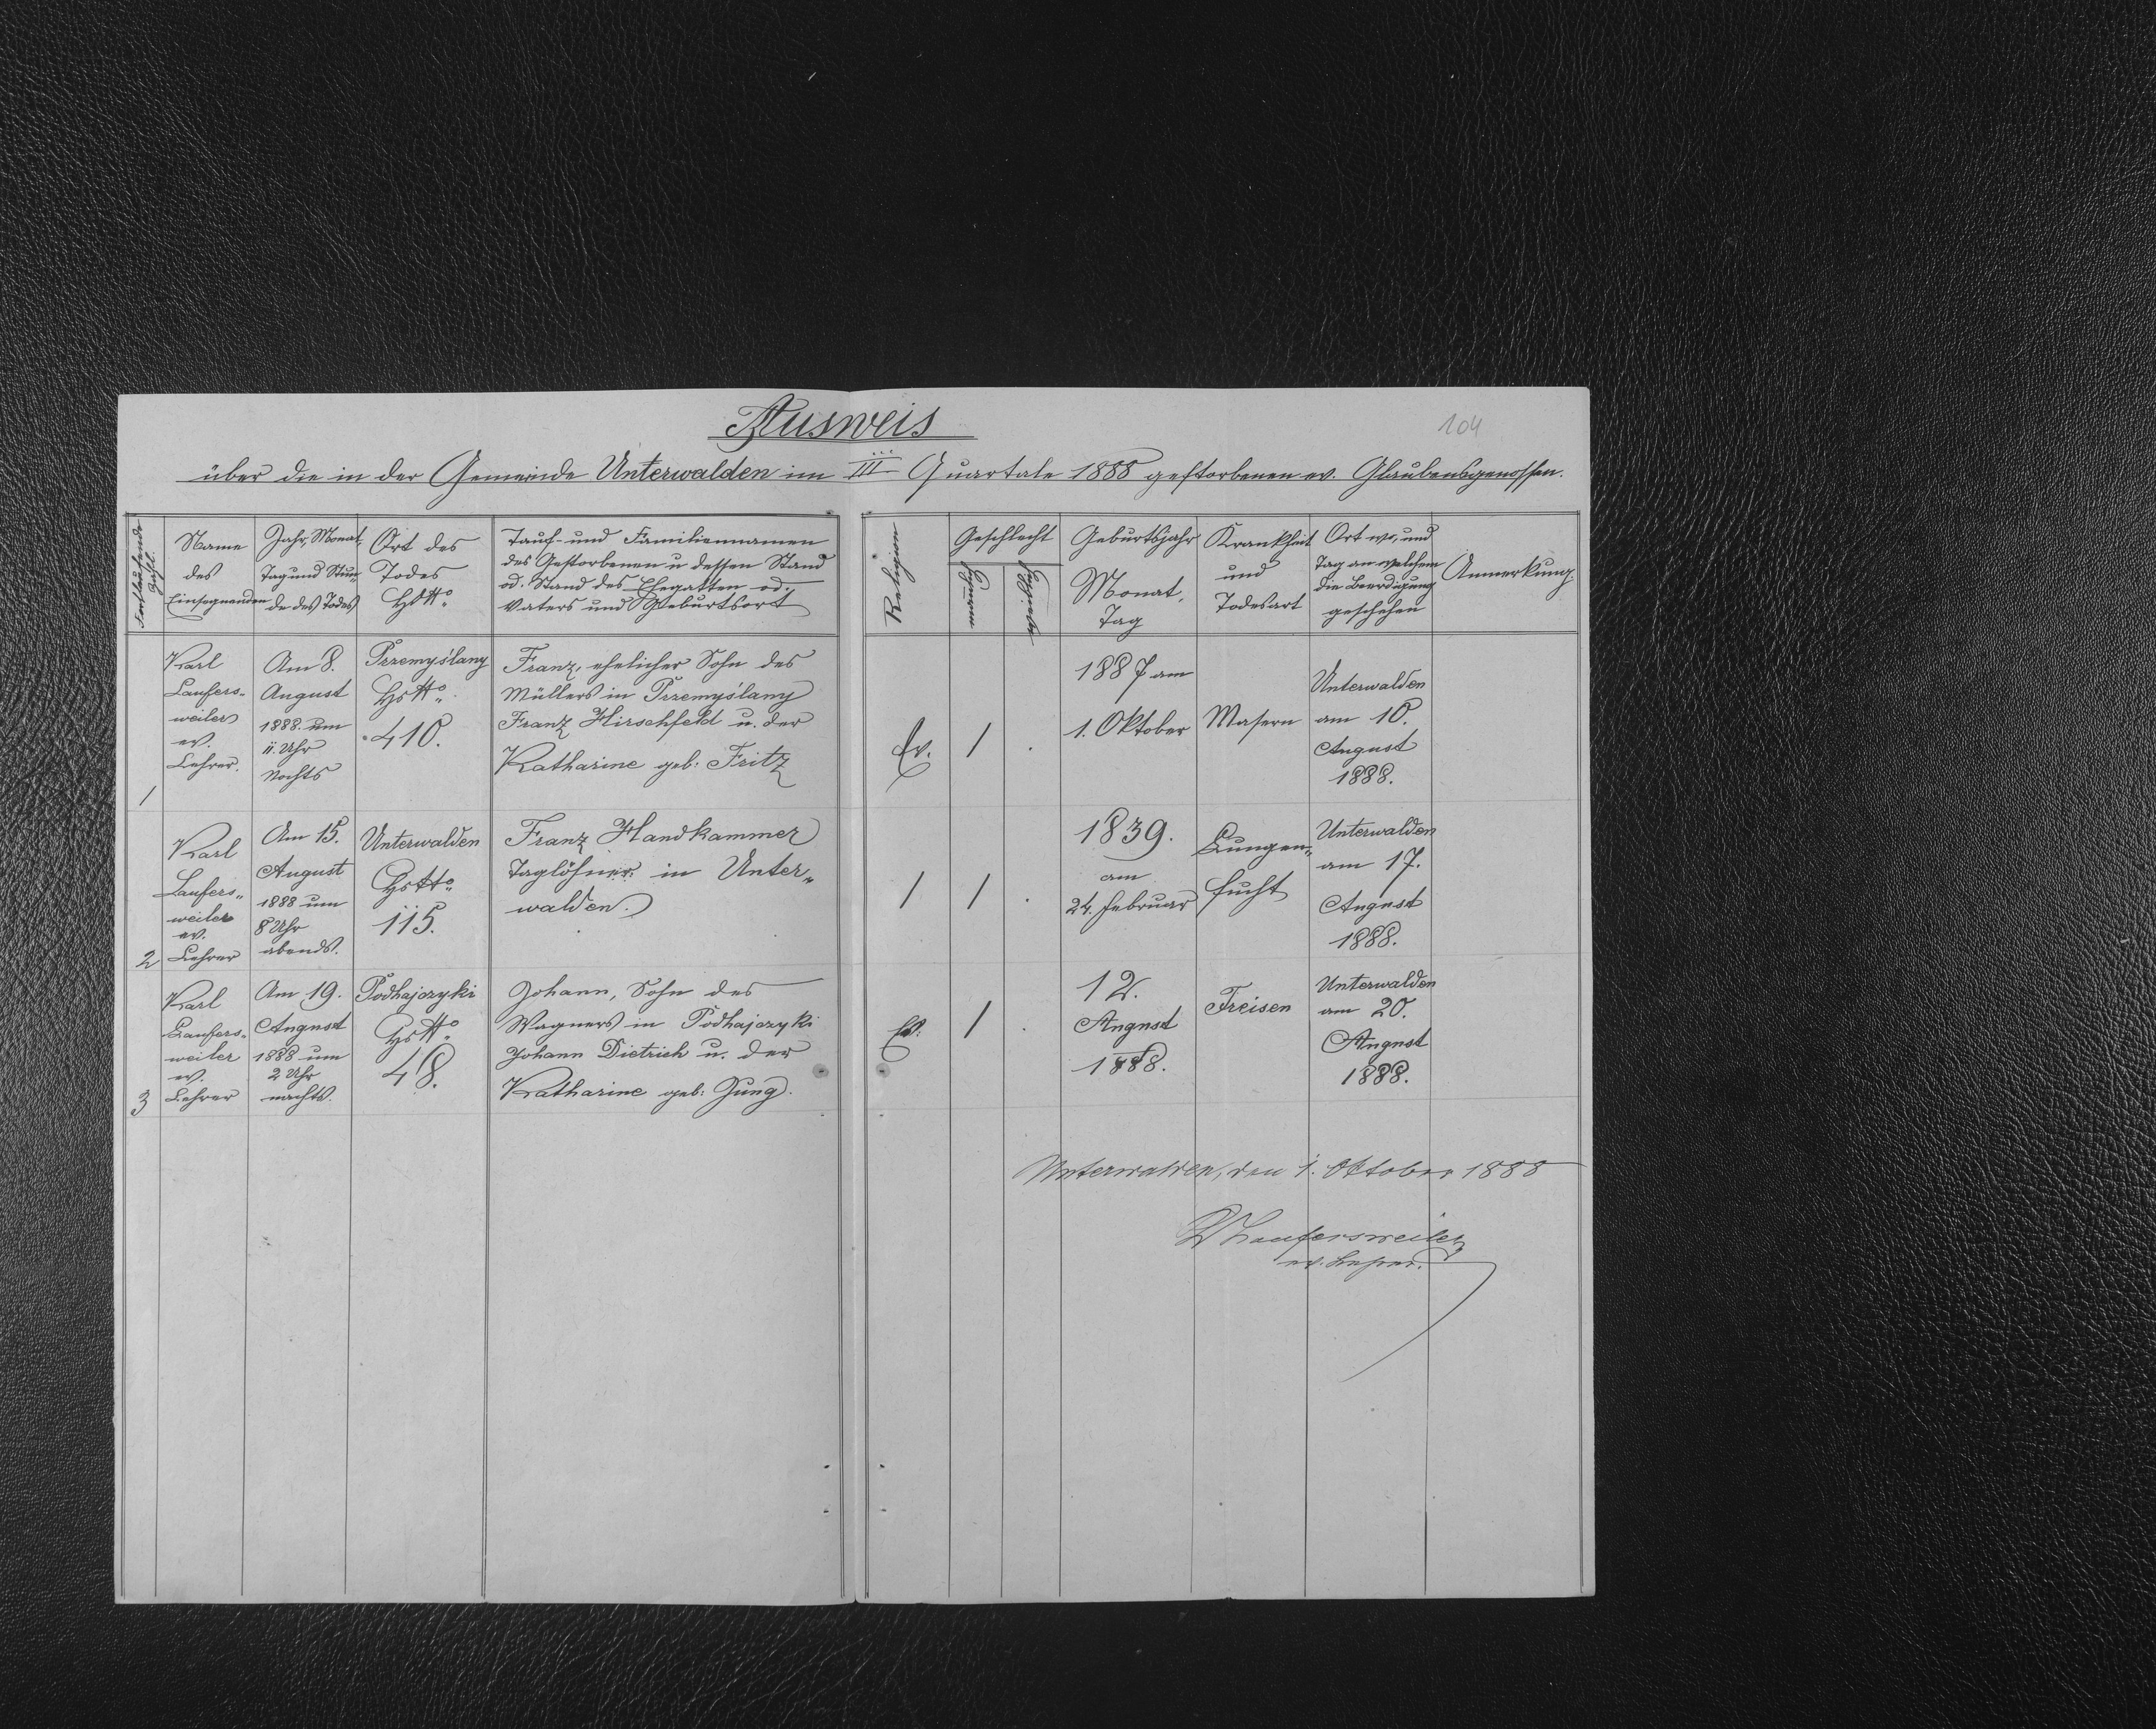 Ausweis
104
über die in der Gemeinde Unterwalden im III Quartale 1888 gestorbenen ev. Glaubensgenossen.
Fortlaufende Zahl.
Name des Einsegnenden
Jahr, Monat, Tag und Stunde des Todes
Ort des Todes HsNo
Tauf- und Familiennamen des Gestorbenen u dessen Stand od. Stand des Ehegatten od. Vaters und Geburtsort
Religion
Geschlecht
Geburtsjahr Monat, Tag
Krankheit und Todesart
Ort wo, und Tag an welchem die Beerdigung geschehen
Anmerkung.
1
Karl
Laufers-
weiler
ev.
Lehrer.
Am 8.
August
1888. um
11. Uhr
Nachts
Przemyślany
HsNo
410.
Franz, ehelicher Sohn des
Müllers in Przemyślany
Franz Hirschfeld u. der
Katharine geb: Fritz
Ev.
1
1887 am
1. Oktober
Masern
Unterwalden
am 10.
August
1888.
2
Karl
Laufers-
weiler
ev.
Lehrer
Am 15.
August
1888 um
8 Uhr
abends.
Unterwalden
HsNo
115.
Franz Handkammer
Taglöhner in Unter-
walden.
1
1839.
am
24. Februar
Lungen-
sucht
Unterwalden
am 17.
August
1888.
3
Karl
Laufers-
weiler
ev.
Lehrer
Am 19.
August
1888 um
2 Uhr
nachts.
Podhajczyki
HsNo
48.
Johann, Sohn des
Wagners in Podhajczyki
Johann Dietrich u. der
Katharine geb: Jung.
Ev.
1
12.
August
1888.
Freisen
Unterwalden
am 20.
August
1888.
Unterwalden, den 1. Oktober 1888
Laufersweiler
ev. Lehrer.